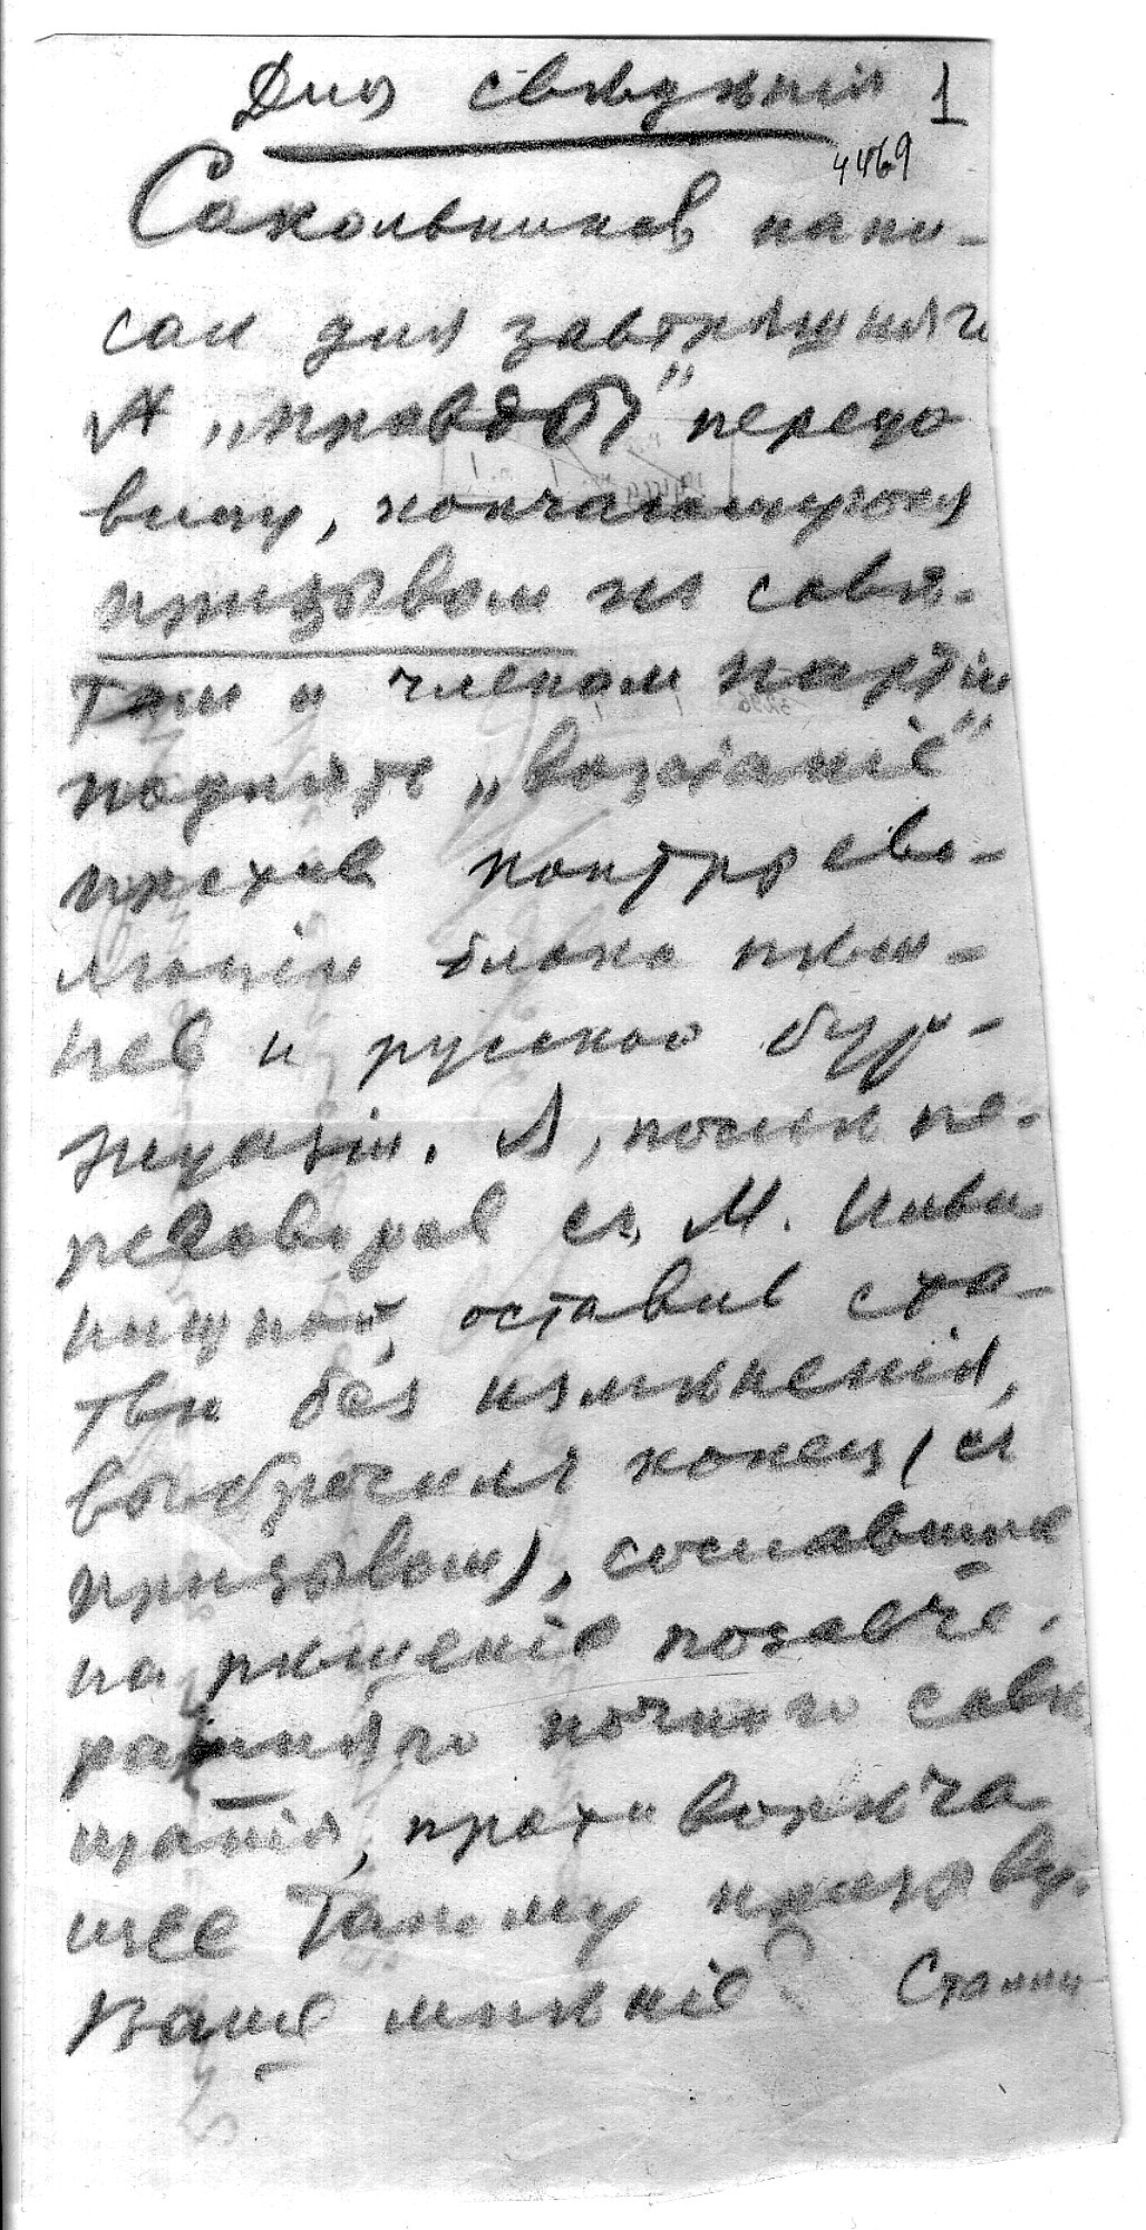 Для свѣдѣнія 1
4469
Сокольников напи-
сал для завтряшняго
№ „Правды" передо
вицу, кончающуюся
призывом к совѣ-
там и членам партіи
поднять „возстаніе"
против контррево-
люціи блока нѣм-
цев и русской бур-
жуазіи. Я, послѣ пе-
реговоров с М.
оставив ста-
тью без измѣненія,
выбросил конец (с
призывом), сославшись
на рѣшеніе позавче-
рашняго ночного совѣ
щанія, противорѣча
щее такому призыву.
Ваше мнѣніе Сталин